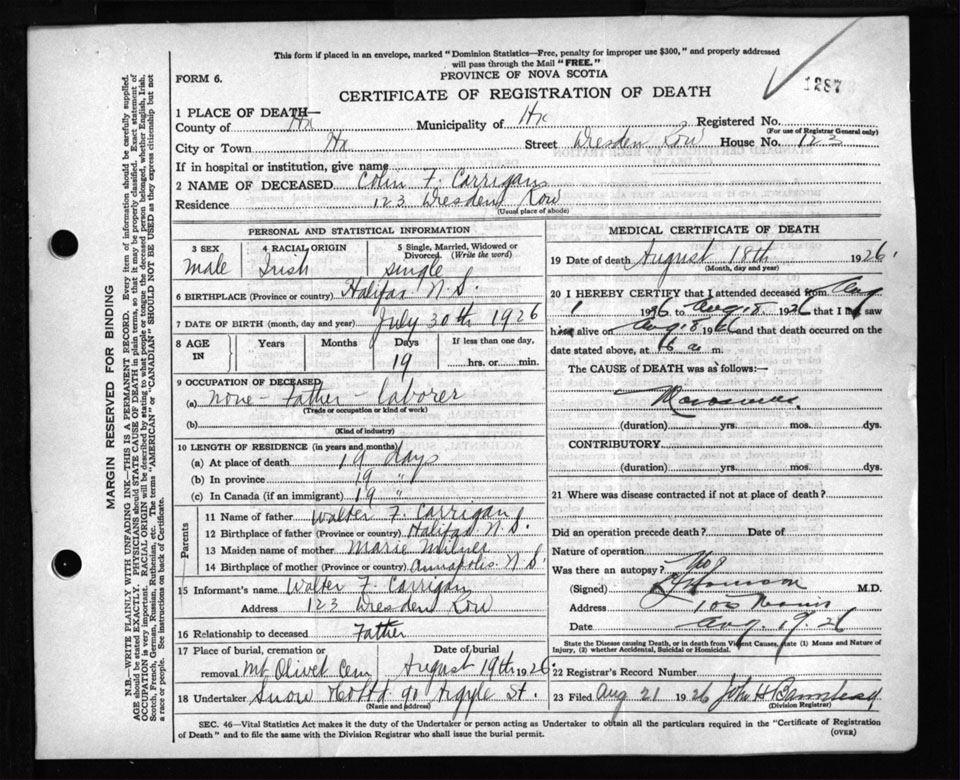 This form if placed in an envelope, marked "Dominion Statistics—Free, penalty for improper use $300," and properly addressed
will pass through the Mail "FREE."
FORM 6.
PROVINCE OF NOVA SCOTIA
1287
CERTIFICATE OF REGISTRATION OF DEATH
1 PLACE OF DEATH—
County of Hx Municipality of Hx Registered No.
(For use of Registrar General only)
City or Town Hx Street Dresden Row House No. 123
If in hospital or institution, give name
2 NAME OF DECEASED Colin F. Carrigan
Residence 123 Dresden Row
(Usual place of abode)
PERSONAL AND STATISTICAL INFORMATION
3 SEX 4 RACIAL ORIGIN 5 Single, Married, Widowed or Divorced. (Write the word)
Male Irish single
6 BIRTHPLACE (Province or country) Halifax N.S.
7 DATE OF BIRTH (month, day and year) July 30th 1926
8 AGE IN Years Months Days If less than one day,
19 hrs. or min.
9 OCCUPATION OF DECEASED
(a) None - Father - laborer
(Trade or occupation or kind of work)
(b)
(Kind of industry)
10 LENGTH OF RESIDENCE (in years and months)
(a) At place of death 19 days
(b) In province 19 "
(c) In Canada (if an immigrant) 19 "
Parents
11 Name of father Walter F. Carrigan
12 Birthplace of father (Province or country) Halifax N.S.
13 Maiden name of mother Marie Milner
14 Birthplace of mother (Province or country) Annapolis N.S.
15 Informant's name Walter F Carrigan
Address 123 Dresden Row
16 Relationship to deceased Father
17 Place of burial, cremation or removal Mt Olivet Cem Date of burial August 19th 1926
18 Undertaker Snow 90 Argyle St.
(Name and address)
MEDICAL CERTIFICATE OF DEATH
19 Date of death August 18th 1926.
(Month, day and year)
20 I HEREBY CERTIFY that I attended deceased from Aug
1 1926 to Aug 18. 1926 that I last saw
him alive on Aug 18 1926 and that death occurred on
date stated above, at m.
The CAUSE of DEATH was as follows:—
(duration) yrs. mos. dys.
CONTRIBUTORY
(duration) yrs. mos. dys.
21 Where was disease contracted if not at place of death?
Did an operation precede death? Date of
Nature of operation
Was there an autopsy? No
(Signed) M.D.
Address 100
Date Aug. 19. 26
State the Disease causing Death, or in death from Violent Causes, state (1) Means and Nature of
Injury, (2) whether Accidental, Suicidal or Homicidal.
22 Registrar's Record Number
23 Filed Aug 21 1926 John H Barnstead
(Division Registrar)
SEC. 46—Vital Statistics Act makes it the duty of the Undertaker or person acting as Undertaker to obtain all the particulars required in the "Certificate of Registration
of Death" and to file the same with the Division Registrar who shall issue the burial permit.
(OVER)
MARGIN RESERVED FOR BINDING
N.B.—WRITE PLAINLY WITH UNFADING INK—THIS IS A PERMANENT RECORD. Every item of information should be carefully supplied.
AGE should be stated EXACTLY. PHYSICIANS should STATE CAUSE OF DEATH in plain terms, so that it may be properly classified. Exact statement of
OCCUPATION is very important. RACIAL ORIGIN will be described by stating to what people or tongue the deceased person belonged, whether English, Irish,
Scotch, French, German, Russian, Ruthenian, etc. The terms "AMERICAN" or "CANADIAN" SHOULD NOT BE USED as they express citizenship but not
a race or people. See instructions on back of Certificate.